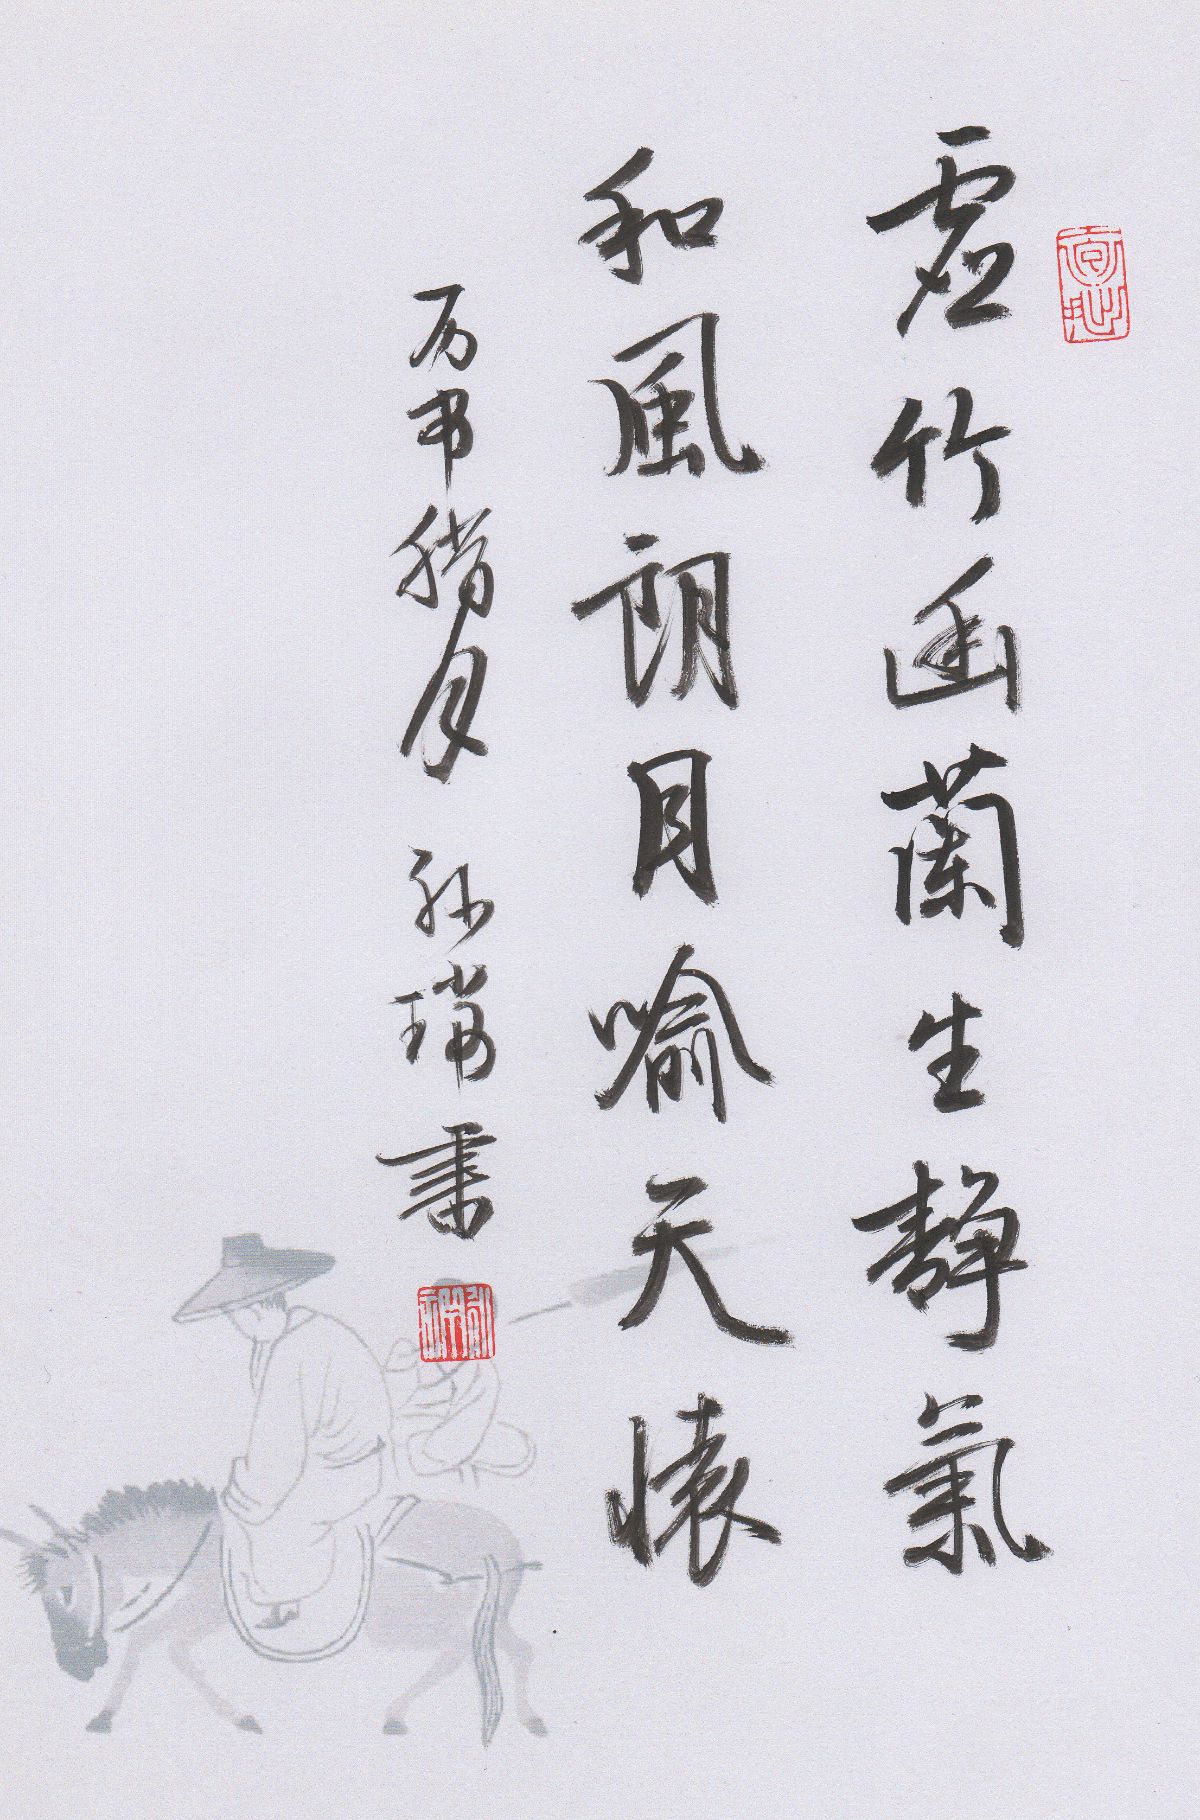 虚竹幽蘭生靜氣
和風朗月喻天懷
丙申腊月 孙瑞書